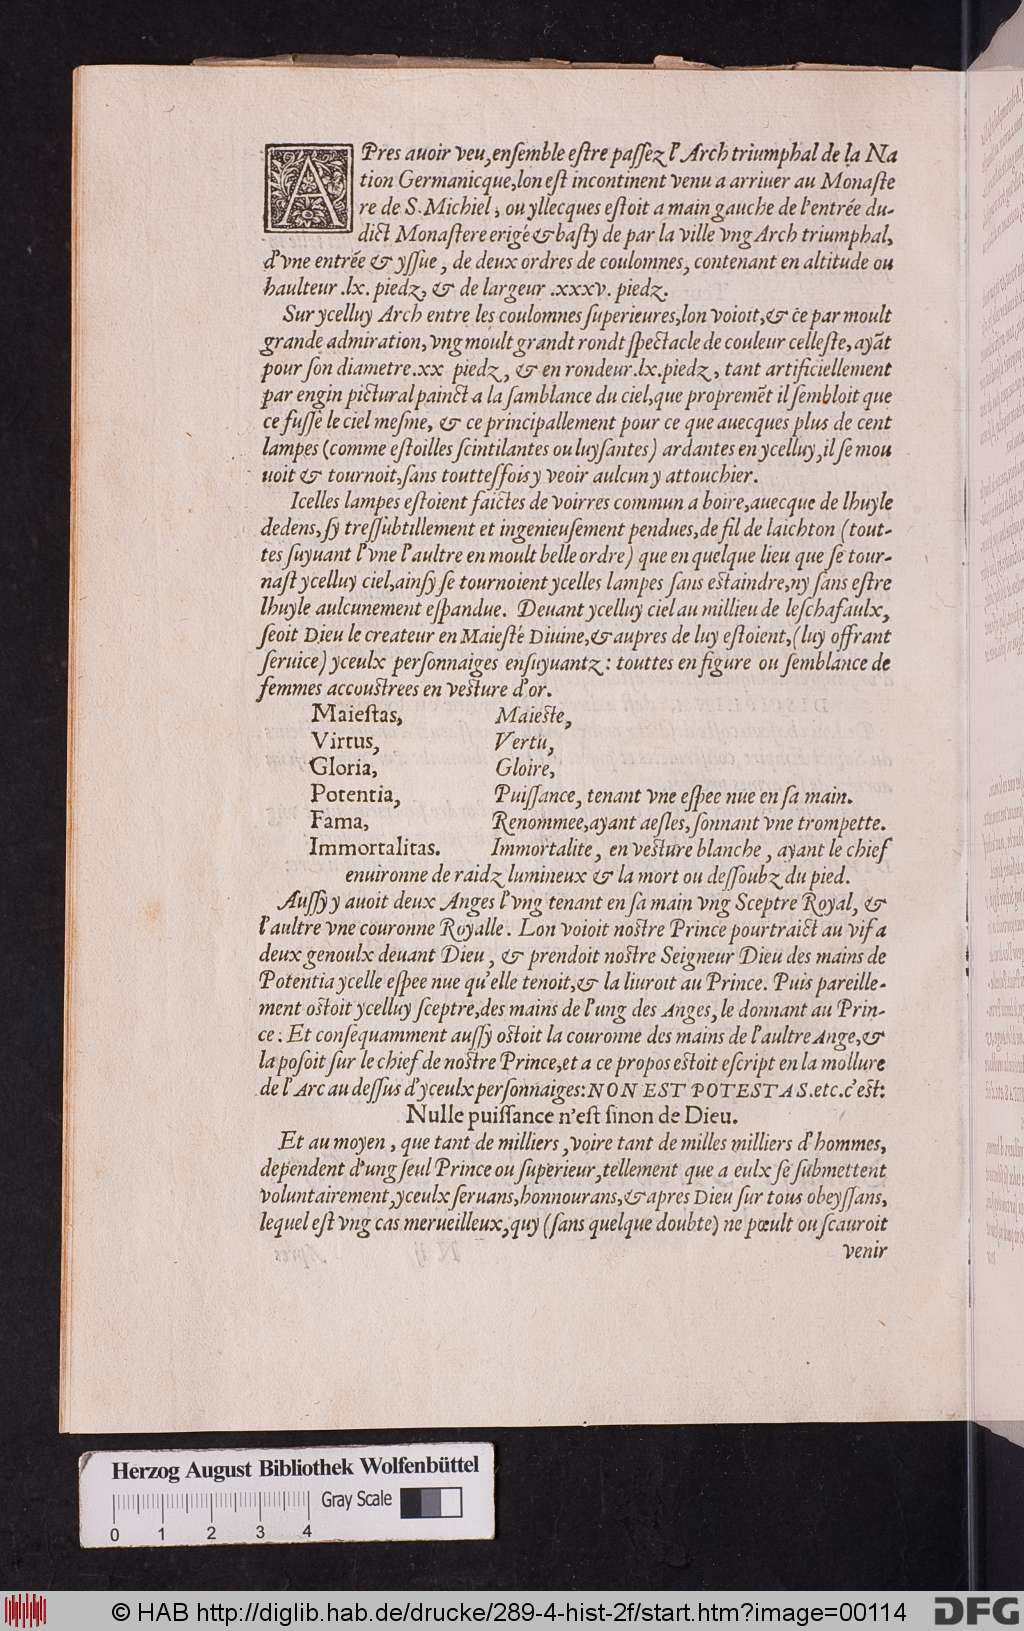 APres auoir veu,ensemble estre passez l'Arch triumphal de la Na
tion Germanicque,lon est incontinent venu a arriuer au Monaste
re de S.Michiel, ou yllecques estoit a main gauche de l'entrée du-
dict Monastere erigé & basty de par la ville vng Arch triumphal,
d'vne entrée & yssue, de deux ordres de coulomnes, contenant en altitude ou
haulteur .lx. piedz, & de largeur .xxxv. piedz.
Sur ycelluy Arch entre les coulomnes superieures,lon voioit,& ce par moult
grande admiration, vng moult grandt rondt spectacle de couleur celleste, ayāt
pour son diametre.xx piedz, & en rondeur.lx.piedz, tant artificiellement
par engin pictural painct a la samblance du ciel,que propremēt il sembloit que
ce fusse le ciel mesme, & ce principallement pour ce que auecques plus de cent
lampes (comme estoilles scintilantes ou luysantes) ardantes en ycelluy, il se mou
uoit & tournoit,sans touttesfois y veoir aulcun y attouchier.
Icelles lampes estoient faictes de voirres commun a boire,auecque de lhuyle
dedens, sy tressubtillement et ingenieusement pendues,de fil de laichton (tout-
tes suyuant l'vne l'aultre en moult belle ordre) que en quelque lieu que se tour-
nast ycelluy ciel,ainsy se tournoient ycelles lampes sans estaindre,ny sans estre
lhuyle aulcunement espandue. Deuant ycelluy ciel au millieu de leschafaulx,
seoit Dieu le createur en Maiesté Diuine,& aupres de luy estoient,(luy offrant
seruice) yceulx personnaiges ensuyuantz : touttes en figure ou semblance de
femmes accoustrees en vesture d'or.
Maiestas, Maieste,
Virtus, Vertu,
Gloria, Gloire,
Potentia, Puissance, tenant vne espee nue en sa main.
Fama, Renommee,ayant aesles, sonnant vne trompette.
Immortalitas. Immortalite, en vesture blanche, ayant le chief
enuironne de raidz lumineux & la mort ou dessoubz du pied.
Aussy y auoit deux Anges l'vng tenant en sa main vng Sceptre Royal, &
l'aultre vne couronne Royalle. Lon voioit nostre Prince pourtraict au vif a
deux genoulx deuant Dieu, & prendoit nostre Seigneur Dieu des mains de
Potentia ycelle espee nue qu'elle tenoit,& la liuroit au Prince. Puis pareille-
ment ostoit ycelluy sceptre,des mains de l'ung des Anges, le donnant au Prin-
ce : Et consequamment aussy ostoit la couronne des mains de l'aultre Ange,&
la posoit sur le chief de nostre Prince,et a ce propos estoit escript en la mollure
de l'Arc au dessus d'yceulx personnaiges:NON EST POTESTAS.etc.c'est:
Nulle puissance n'est sinon de Dieu.
Et au moyen, que tant de milliers, voire tant de milles milliers d'hommes,
dependent d'ung seul Prince ou superieur,tellement que a eulx se submettent
voluntairement,yceulx seruans,honnourans,& apres Dieu sur tous obeyssans,
lequel est vng cas merueilleux,quy (sans quelque doubte) ne pœult ou scauroit
venir
Herzog August Bibliothek Wolfenbüttel
Gray Scale
0 1 2 3 4
© HAB http://diglib.hab.de/drucke/289-4-hist-2f/start.htm?image=00114
DFG